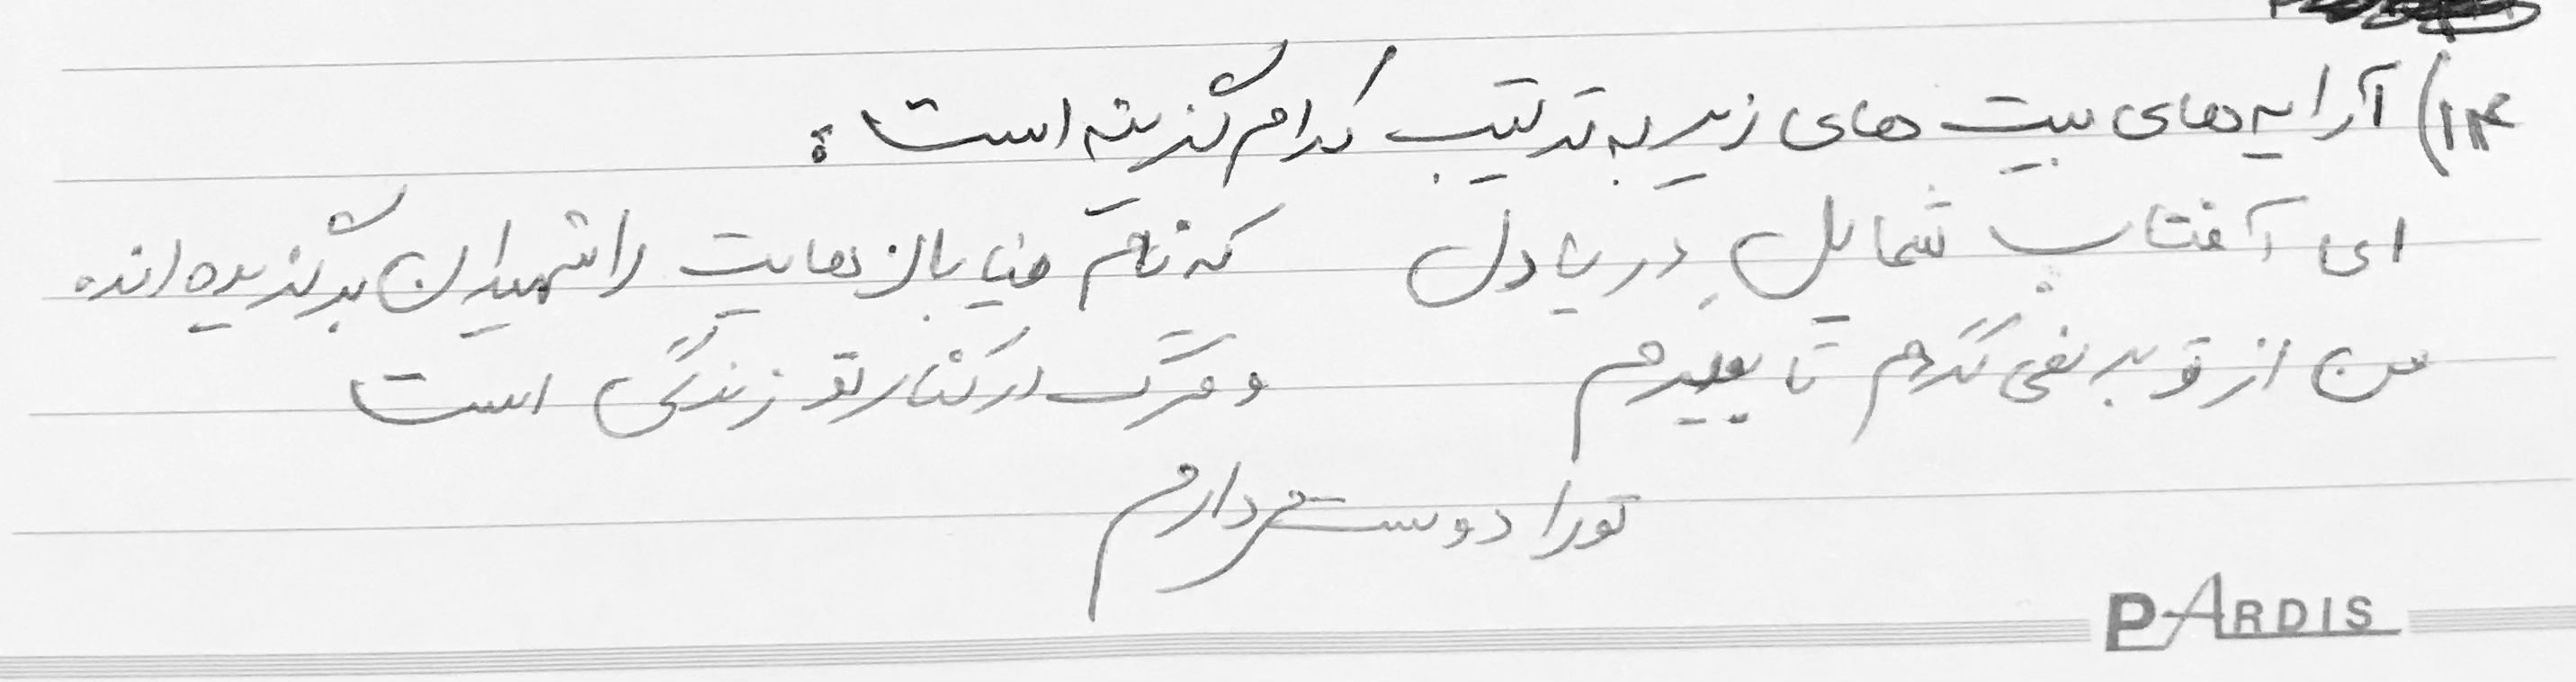 ۱۴) آرایه های بیت های زیر به ترتیب کدام گزینه است؟
ای آفتاب شمایل دریادل که نام خیابان هایت را شهیدان برگزیده اند
من از تو بر نمی گردم تا بمیرم و مرگ در کنار تو زندگی است
تو را دوست می دارم
PARDIS